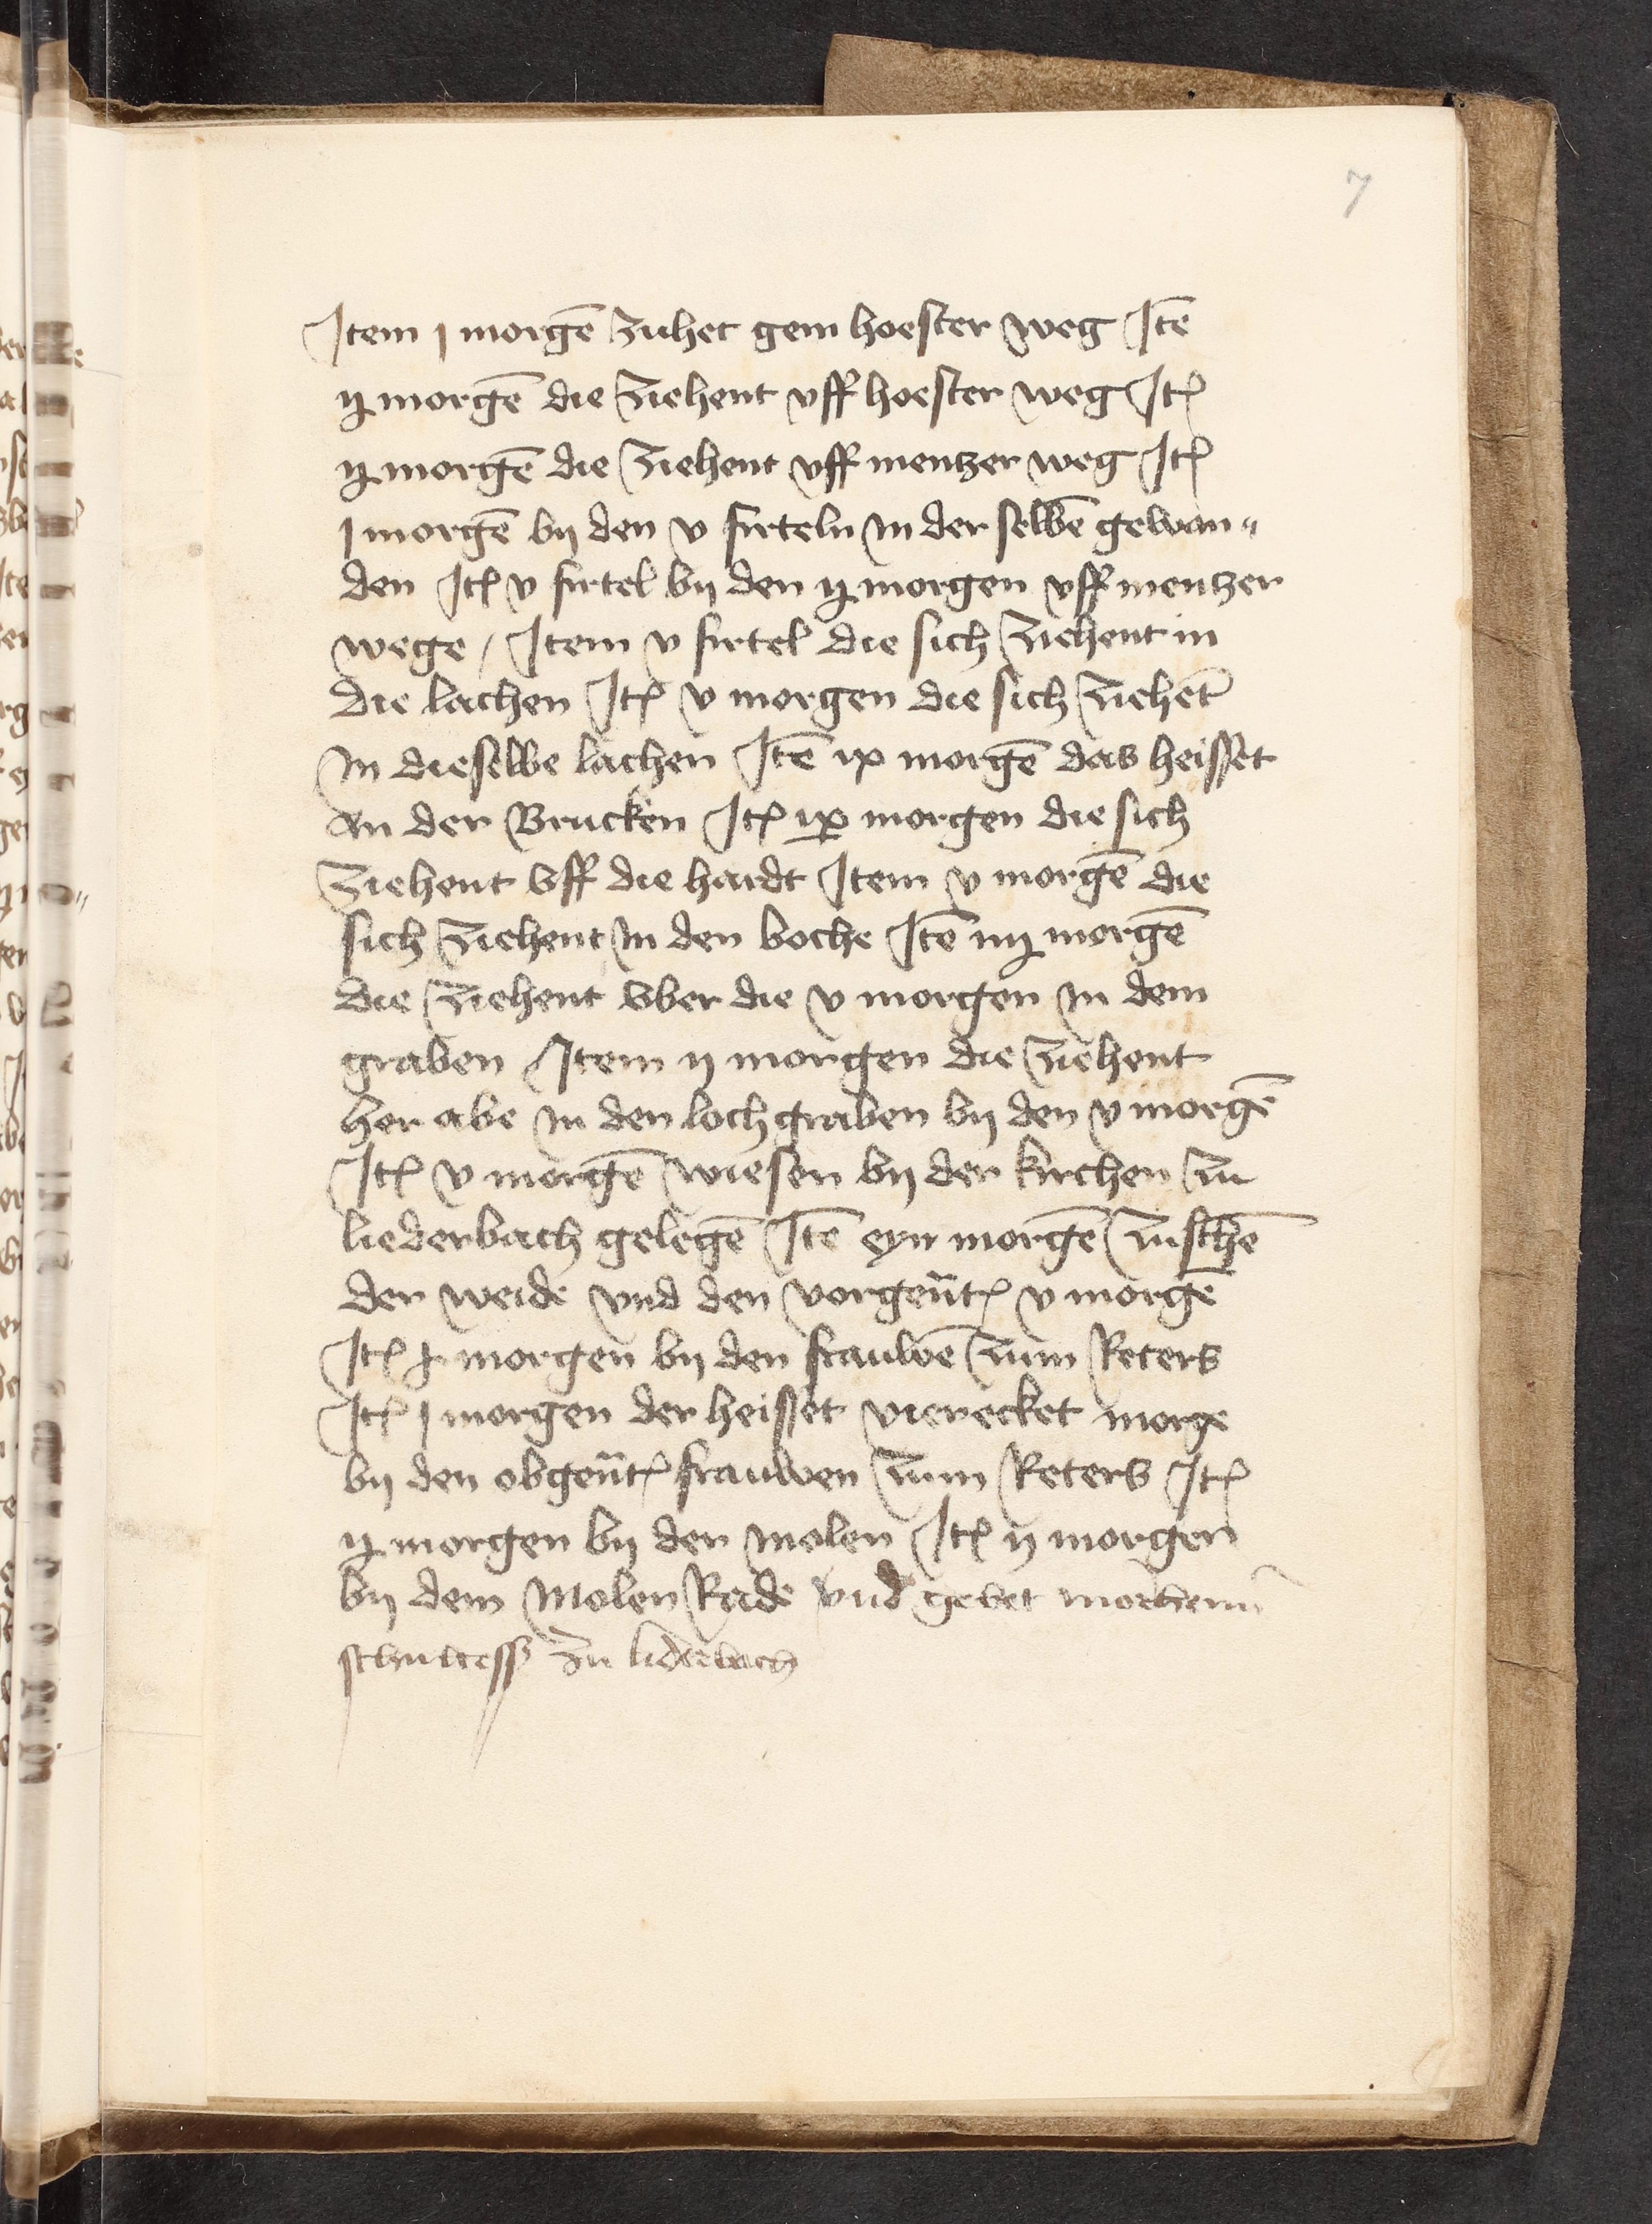 7
Item j morgē zuhet gem hoester weg Itē
ij morgē die ziehent vff hoester weg Itꝭ
ij morgē die ziehent vff mentzer weg Itꝭ
j morgē by den v firteln in der selbē gewan„
den Itꝭ v firtel by den ij morgen vff mentzer
wege / Item v firtel die sich ziehent in
die lachen Itꝭ v morgen die sich ziehēt
In dieselbe lachen Itē ix morgē das heisset
an der Brucken Itꝭ ix morgen die sich
ziehent vff die hardt Item v morgē die
sich ziehent in den boche Itē iiij morgē
die ziehent vber die v morgen in dem
graben Item ij morgen die ziehent
her abe in den loch graben by den v morgē
Itꝭ v morgē wiesen by der kirchen zu
liederbach gelegē Itē eyn morgē zuschē
der weide vnd den vorgen̄tꝭ v morge
Itꝭ morgen by den frauwē zum Reters
Itꝭ j morgen der heisset vierecket morge
by den obgen̄tꝭ frauwen zum Reters Itꝭ
ij morgen by der molen Itꝭ ij morgen
by dem Molen Rade vnd gebet
schultess zu liderbach